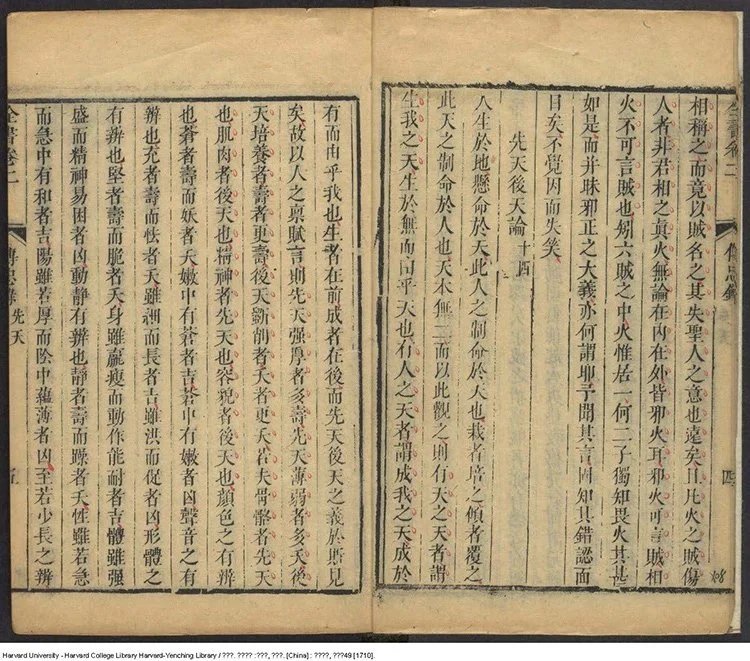 全書卷二
傳忠錄
四
108
相稱之而竟以賊名之其失聖人之意也遠矣且凡火之賊傷
人者非君相之真火無論在內在外皆邪火耳邪火可言賊相
火不可言賊也矧六賊之中火惟居一何二子獨知畏火其甚
如是而并昧邪正之大義亦何謂耶予聞其言固知其錯認面
目矣不覺因而失笑
先天後天論十四
人生於地懸命於天此人之制命於天也栽者培之傾者覆之
此天之制命於人也天本無二而以此觀之則有天之天者謂
生我之天生於無而由乎天也有人之天者謂成我之天成於
有而由乎我也生者在前成者在後而先天後天之義於斯見
矣故以人之稟賦言則先天强厚者多壽先天薄弱者多夭後
天培養者壽者更壽後天斵削者夭者更夭若夫骨骼者先天
也肌肉者後天也精神者先天也容貌者後天也顏色之有辨
也蒼者壽而妖者夭嫩中有蒼者吉蒼中有嫩者凶聲音之有
辨也充者壽而怯者夭雖細而長者吉雖洪而促者凶形體之
有辨也堅者壽而脆者夭身雖羸瘦而動作能耐者吉體雖强
盛而精神易困者凶動靜有辨也靜者壽而躁者夭性雖若急
而急中有和者吉陽雖若厚而陰中蘊薄者凶至若少長之辨
全書卷二
傳忠錄
先天
五
Harvard University - Harvard College Library Harvard-Yenching Library / ???. ???? :???, ???. [China] : ????, ???49 [1710].